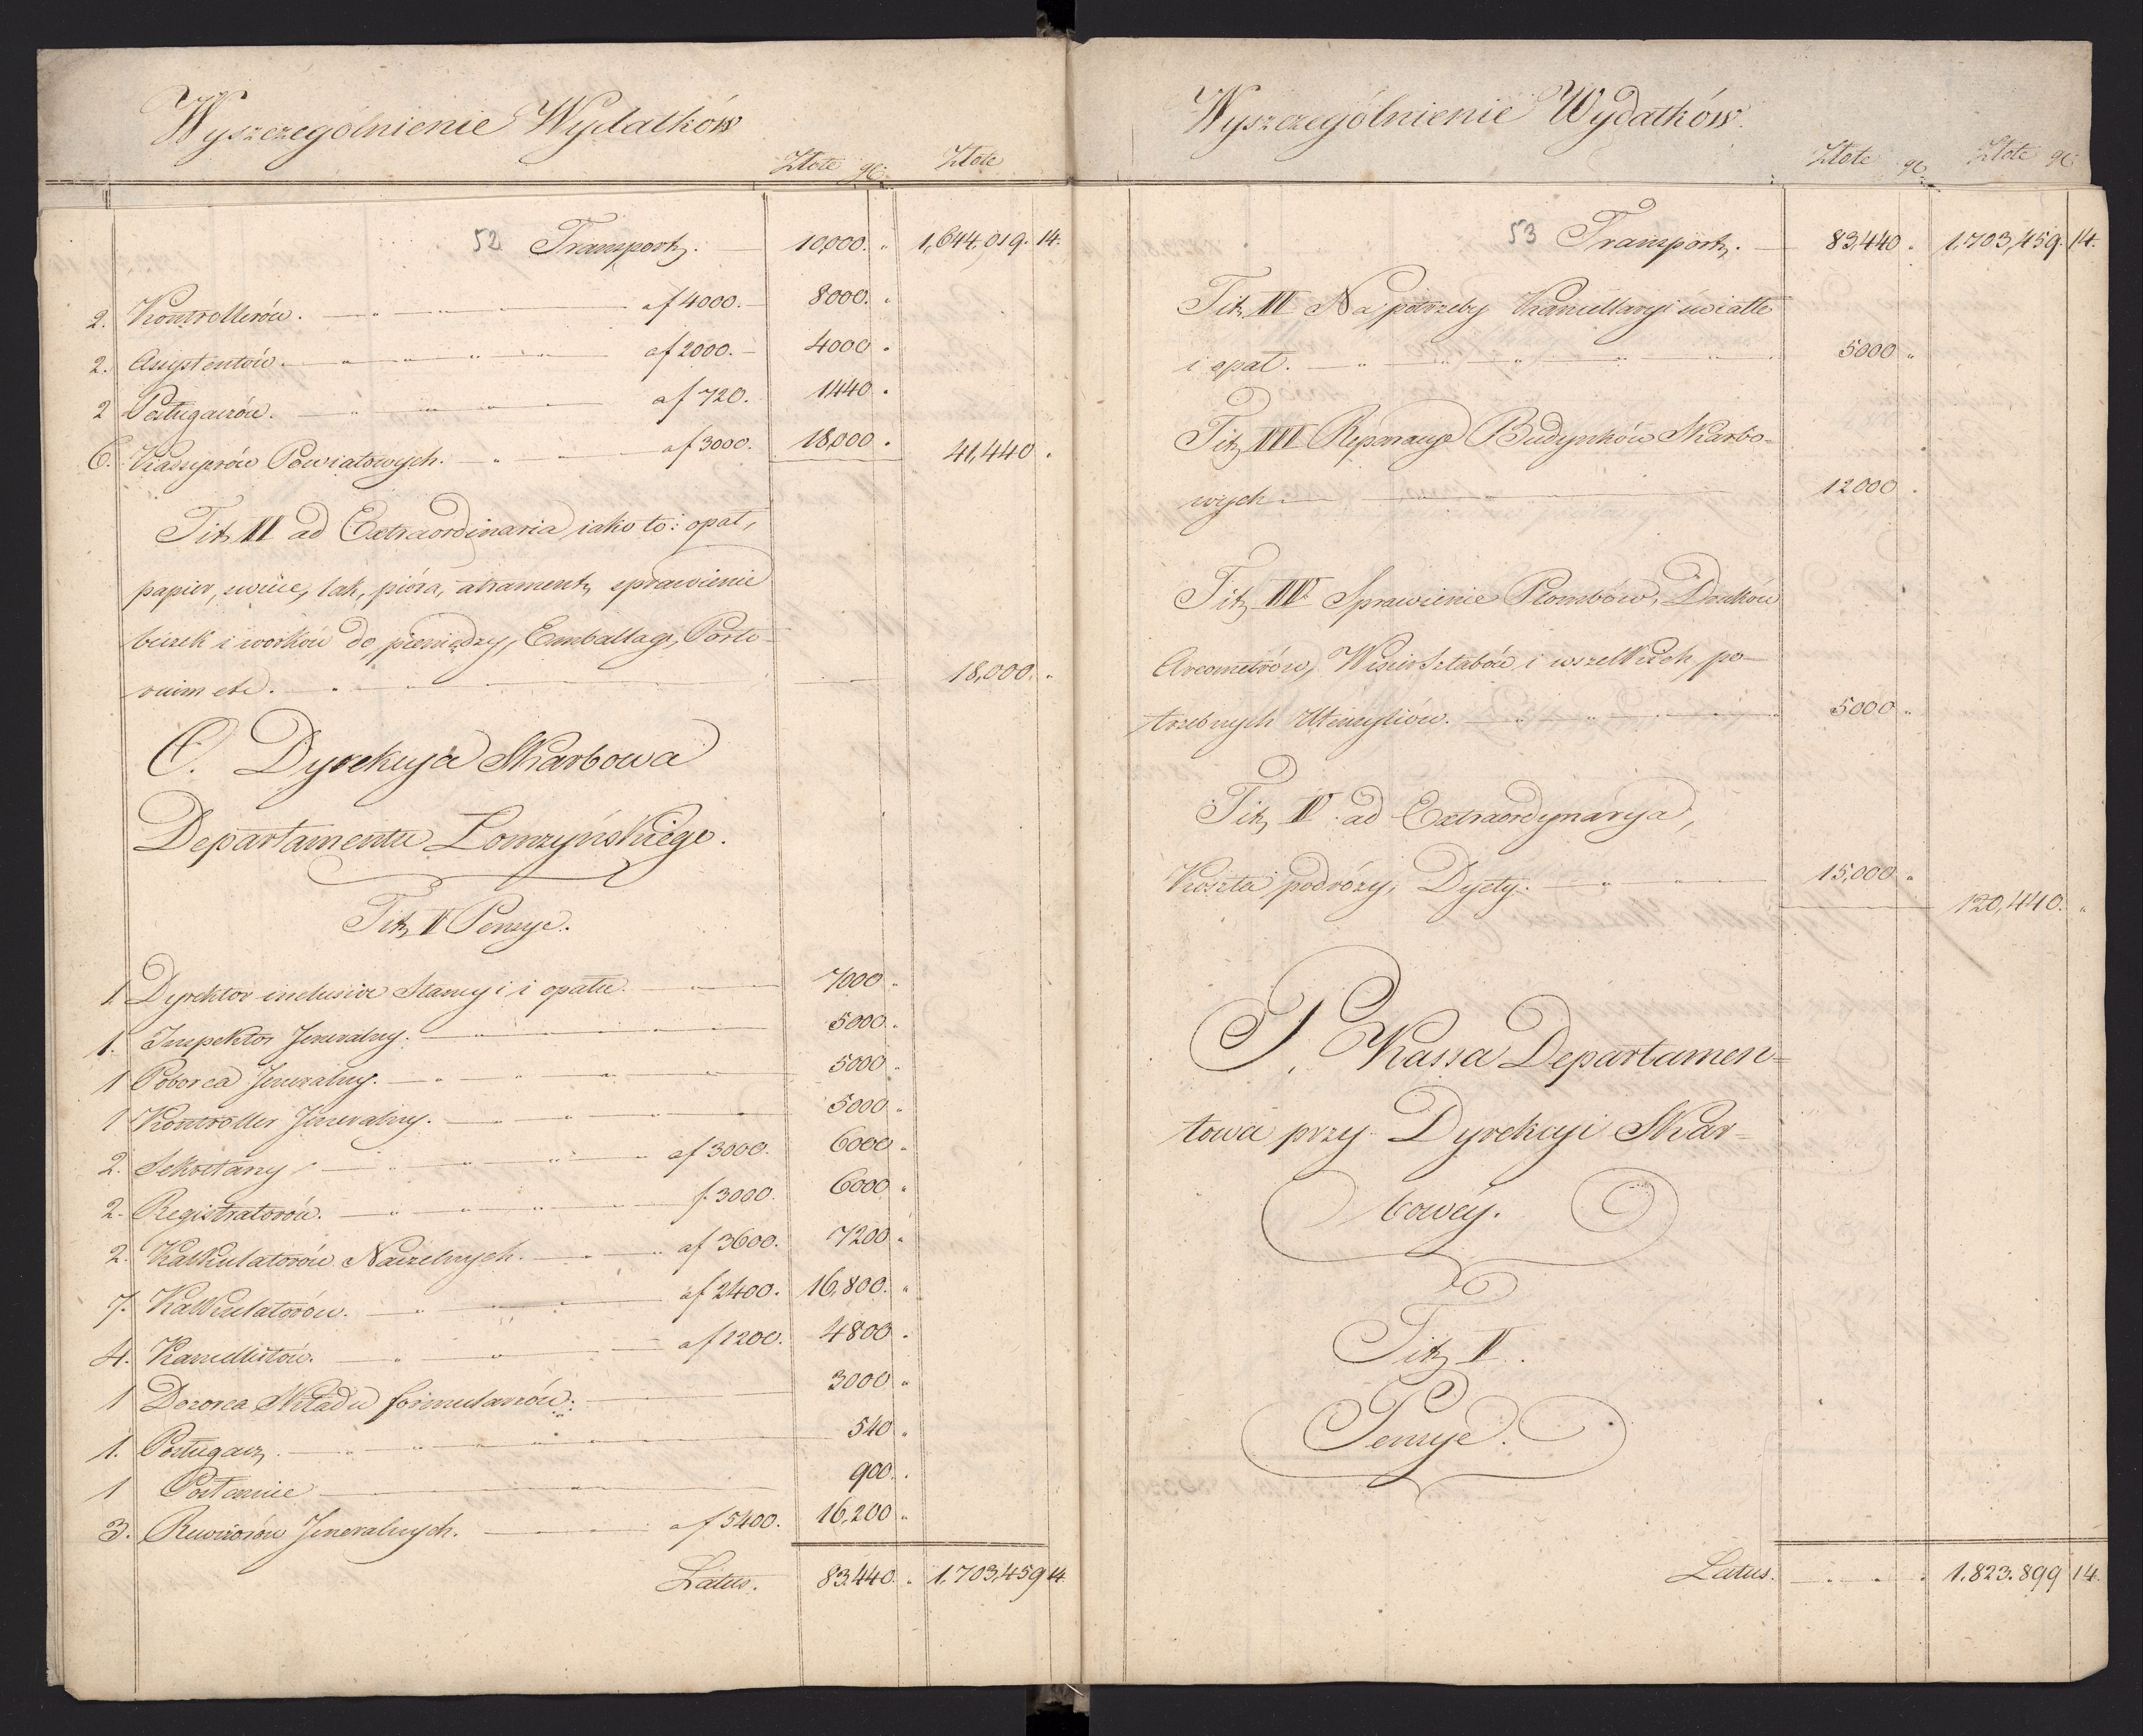 Wyszczególnienie Wydatków
Złote gr. Złote
52 Transport. 10,000. „ 1,644,019. 14.
2. Kontrollerów. af 4000. 8000. „
2. Assystentów. af 2000. 4000 „
2 Posługaczów. af 720. 1440 „
6. Kassyerów Powiatowych. af 3000. 18,000 „ 41,440 „
Tit. II ad Extraordinaria iako to: opał,
papier, świéce, lak, pióra, atrament, sprawienie
beczek i worków do pieniędzy, Emballage, Porto-
rium etc. 18,000. „
O. Dyrekcya Skarbowa
Departamentu Łomżyńskiego.
Tit. I Pensye.
1. Dyrektor inclusive Stancyi i opału. 7000 „
1. Inspektor Jeneralny. 5000 „
1 Poborca Jeneralny. 5000 „
1 Kontroller Jeneralny. 5000 „
2. Sekretarzy af 3000. 6000 „
2. Registratorów. f 3000. 6000 „
2. Kalkulatorów Naczelnych. af 3600. 7200 „
7. Kalkulatorów. af 2400. 16,800. „
4. Kancellistów. af 1200. 4800 „
1 Dozorca Składu formularzów. 3000 „
1. Posługacz. 540 „
1 Posłaniec 900. „
3. Rewizorów Jeneralnych. af 5400. 16,200 „
Latus. 83,440. „ 1,703,459 14.
Wyszczególnienie Wydatków.
Złote gr. Złote gr.
53 Transport. 83,440 „ 1,703,459. 14.
Tit. II Na potrzeby Kancellaryi światło
i opał. 5000 „
Tit. III Reparacye Budynków Skarbo-
wych 12000 „
Tit. IV. Sprawienie Plombów, Druków
Areometrów, Wisiersztabów i wszelkich po-
trzebnych Utensyliów. 5000 „
Tit. V. ad Extraordynarya,
Koszta podróży, Dyety. 15,000 „ 120,440. „
P. Kassa Departamen-
towa przy Dyrekcyi Skar-
bowéy.
Tit. I.
Pensye.
Latus. 1.823.899 14.